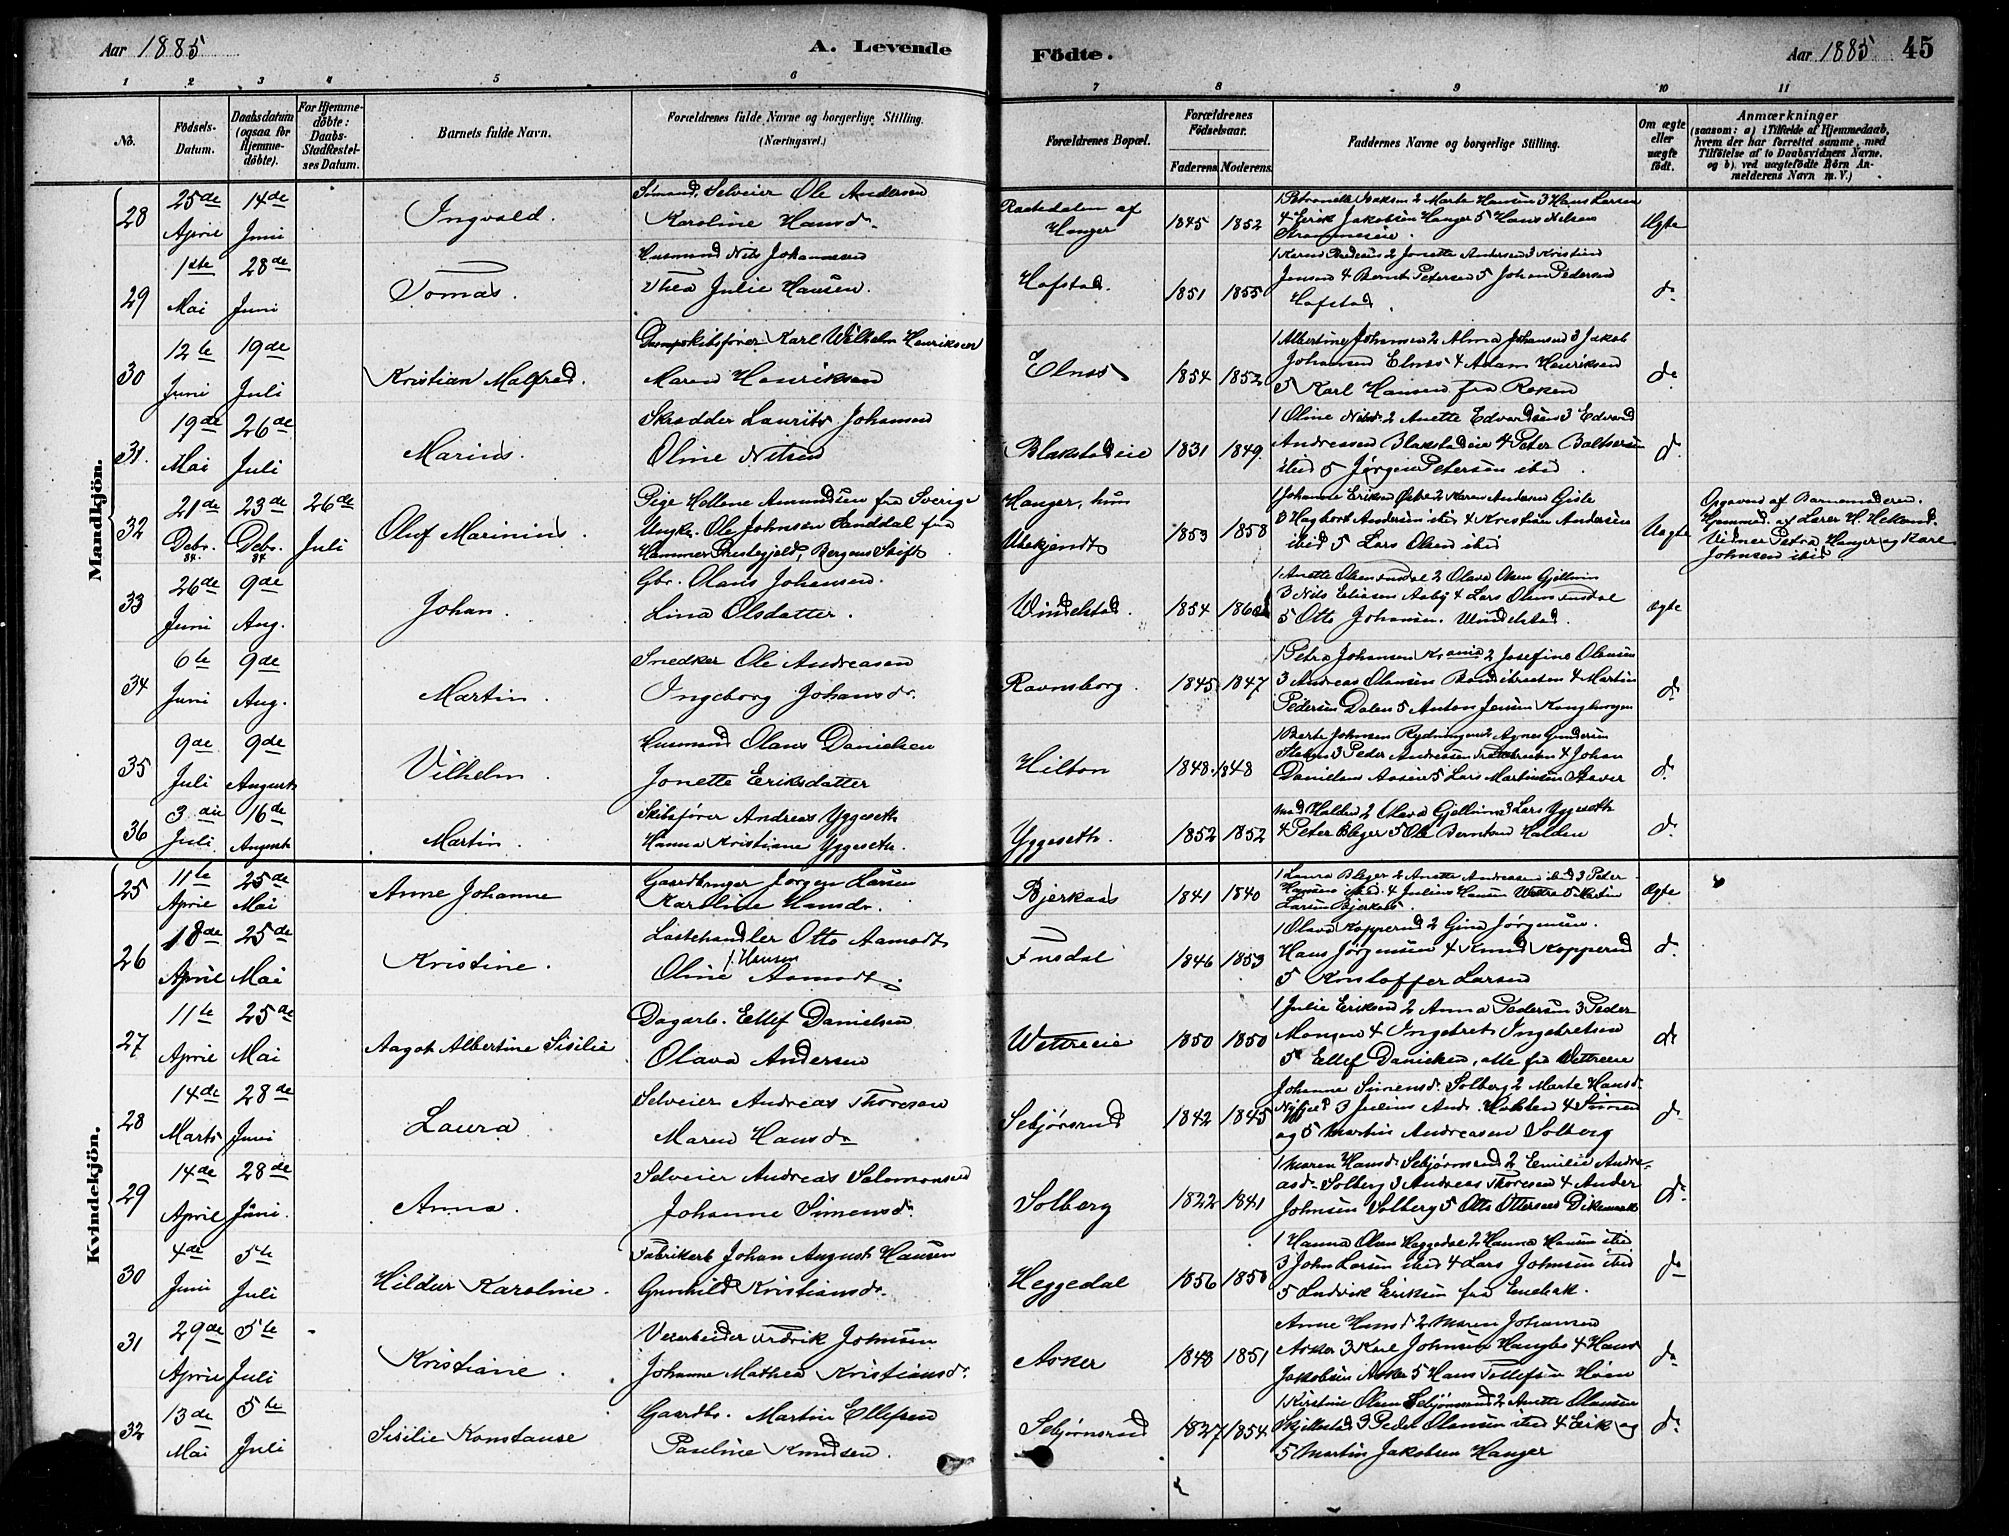 Aar 1885
A. Levende
Födte.
Aar 1885 45
1 2 3 4 5 6 7 8 9 10 11
No.
Födsels-Datum.
Daabsdatum (ogsaa for Hjemme-döbte).
For Hjemme-döbte: Daabs-Stadfæstel-ses Datum.
Barnets fulde Navn.
Forældrenes fulde Navne og borgerlige Stilling. (Næringsvei.)
Forældrenes Bopæl.
Forældrenes Födselsaar.
Faderens. Moderens.
Faddernes Navne og borgerlige Stilling.
Om ægte eller uægte födt.
Anmærkninger
(saasom: a) i Tilfælde af Hjemmedaab, hvem der har forrettet samme, med Tilföielse af to Daabsvidners Navne. og b) ved uægtefödte Börn An-melderens Navn m. V.)
Mandkjön.
28 25de April 14de Juni Ingvald.
Sømand, Selveier Ole Andersen
Karoline Hansd.
af Hanger 1845 1852
1 Petronelle 2 Marte Hansen 3 Hans Larsen
4 Erik Jakobsen Hanger 5 Hans Nilsen
Ægte
29 1ste Mai 28de Juni Tomas.
Husmand Nils Johannesen
Thea Julie Hansen.
Hofstad. 1851 1855
2 Jonette Andersen 3 Kristian
Jensen 4 Bernt Petersen 5 Johan Pedersen
Hofstad.
do
30 12te Juni 19de Juli Kristian Malfred.
Dampskibsfører Karl Wilhelm Henriksen
Maren Henriksen
Elnes 1854 1852
1 Albertine Johansen 2 Alma Johansen 3 Jakob
Johansen Elnes 4 Adam Henriksen
5 Karl Hansen fra Røken
do
31. 19de Mai 26de Juli Marius.
Skrædder Laurits Johansen
Oline Nilsen
Blakstadeie 1831 1849.
1 Oline Nilsd. 2 Anette Edvardsen 3 Edvard
Andreassen Blakstadeie 4 Peter Baltsersen
ibid 5 Jørgen Petersen ibid.
do
32 21de Debr. 84. 23de Debr. 84 26de Juli Oluf Marinius.
Pige Hellene Amundsen fra Sverige
Ungk. Ole Johnsen Sanddal fra
Hammer Præstegjeld, Bergens Stift
Hanger, hun
Ubekjendt 1853 1858
1 Johanne Eriksen Østre 2 Karen Andersen Gisle
3 Hagbart Andersen ibid 4 Kristian Andersen
ibid 5 Lars Olsen ibid
Uægte
Opgaven af Barnemoderen.
Hjemmed. af Lærer H. Hekand.
Vidner Petra Hanger og Karl
Johnsen ibid
33 26de Juni 9de Aug. Johan.
Gbr. Olaus Johansen.
Lina Olsdatter.
Windelstad. 1854
1 Anette Olsen 2 Olava Olsen Gjellum
3 Nils Eliesen Aaby 4 Lars Olsen
5 Otto Johansen. Windelstad.
ægte
34 6te Juni 9de Aug. Martin.
Snedker Ole Andreasen
Ingeborg Johansdr.
Ravnsborg. 1845 1847
1 Petra Johansen Krania 2 Josefine Olausen
3 Andreas Olausen 4 Martin
Pedersen Dalen 5 Anton Jensen Kongborgen
do
35 9de Juli 9de August Vilhelm.
Husmand Olaus Danielsen
Jonette Eriksdatter
Hilton 1848. 1848
1 Berte Johnsen Rydningen 2 Agnes Gundersen
3 Peder Andreassen 4 Johan
Danielsen 5 Lars Martinsen
do
36 3die Juli 16de August Martin.
Skibsfører Andreas Yggeseth
Hanna Kristiane Yggeseth.
Yggeseth. 1852 1852
Halden 2 Olava Gjellum 3 Lars Yggeseth
4 Peter Bleger 5 Ole Berntsen Halden
do
Kvindekjön.
25 11te April 25de Mai Anne Johanne
Gaardbruger Jørgen Larsen
Karoline Hansdr.
Bjerkaas 1841 1840
1 Laura Bleger 2 Anette Andreasen ibid 3 Peter
Hansen ibid. 4 Julius Hansen Wettre 5 Martin
Larsen Bjerkaas.
Ægte
26 18de April 25de Mai Kristine.
Lastehandler Otto Aamodt
f. Hansen
Oline Aamodt.
Fusdal 1846 1853
1 Olava Kopperud 2 Gina Jørgensen.
Hans Jørgensen 4 Knud Kopperud
5 Kristoffer Larsen
do
27 11te April 25de Mai Aagot Albertine Sisilie
Dagarb. Ellef Danielsen
Olava Andersen
Wettreeie 1850 1850
1 Julie Eriksen 2 Anna Pedersen 3 Peder
Mongen 4 Ingebret Ingebretsen
5 Ellef Danielsen, alle fra Wettreeie
do
28 14de Marts 28de Juni Laura
Selveier Andreas Thoresen
Maren Hansdr
Sebjørnsrud 1842 1845
Johanne Simensd. Solberg 2 Marte Hansd.
3 Julius And. Holsten 4 Simen
og 5 Martin Andreasen Solberg
do
29 14de April 28de Juni. Anna.
Selveier Andreas Salomonsen
Johanne Simensdr.
Solberg 1822 1841
1 Maren Hansd. Sebjørnsrud 2 Emilie Andre-
asd. Solberg 3 Andreas Thoresen 4 Anders
Johnsen Solberg 5 Otto Ottersen Dikemark
do
30 4de Juni 5te Juli Hildur Karoline.
Fabrikarb. Johan August Hansen
Gunhild Kristiansdr.
Heggedal 1856 1850
1 Hanna Olsen Heggedal 2 Hanna Hansen ibid
3 John Larsen ibid 4 Lars Johnsen ibid
5 Ludvik Eriksen fra Enebak.
do
31 29de April 5te Juli Kristiane.
Veiarbeider Fredrik Johnsen.
Johanne Mathea Kristiansdr.
Asker 1848 1851
Anne Hansd 2 Maren Johansen
Asker 3 Karl Johnsen 4 Hans
Jakobsen Asker 5 Hans Tollefsen Høen
do
32 13de Mai 5te Juli Sisilie Konstanse
Gaardbr. Martin Ellefsen
Pauline Knudsen.
Sebjørnsrud 1827 1854
1 Kirstine Olsen Sebjørnsrud 2 Anette Olausen
Skjellestad 3 Peder Olausen ibid 4 Erik og
5 Martin Jakobsen Hanger
do